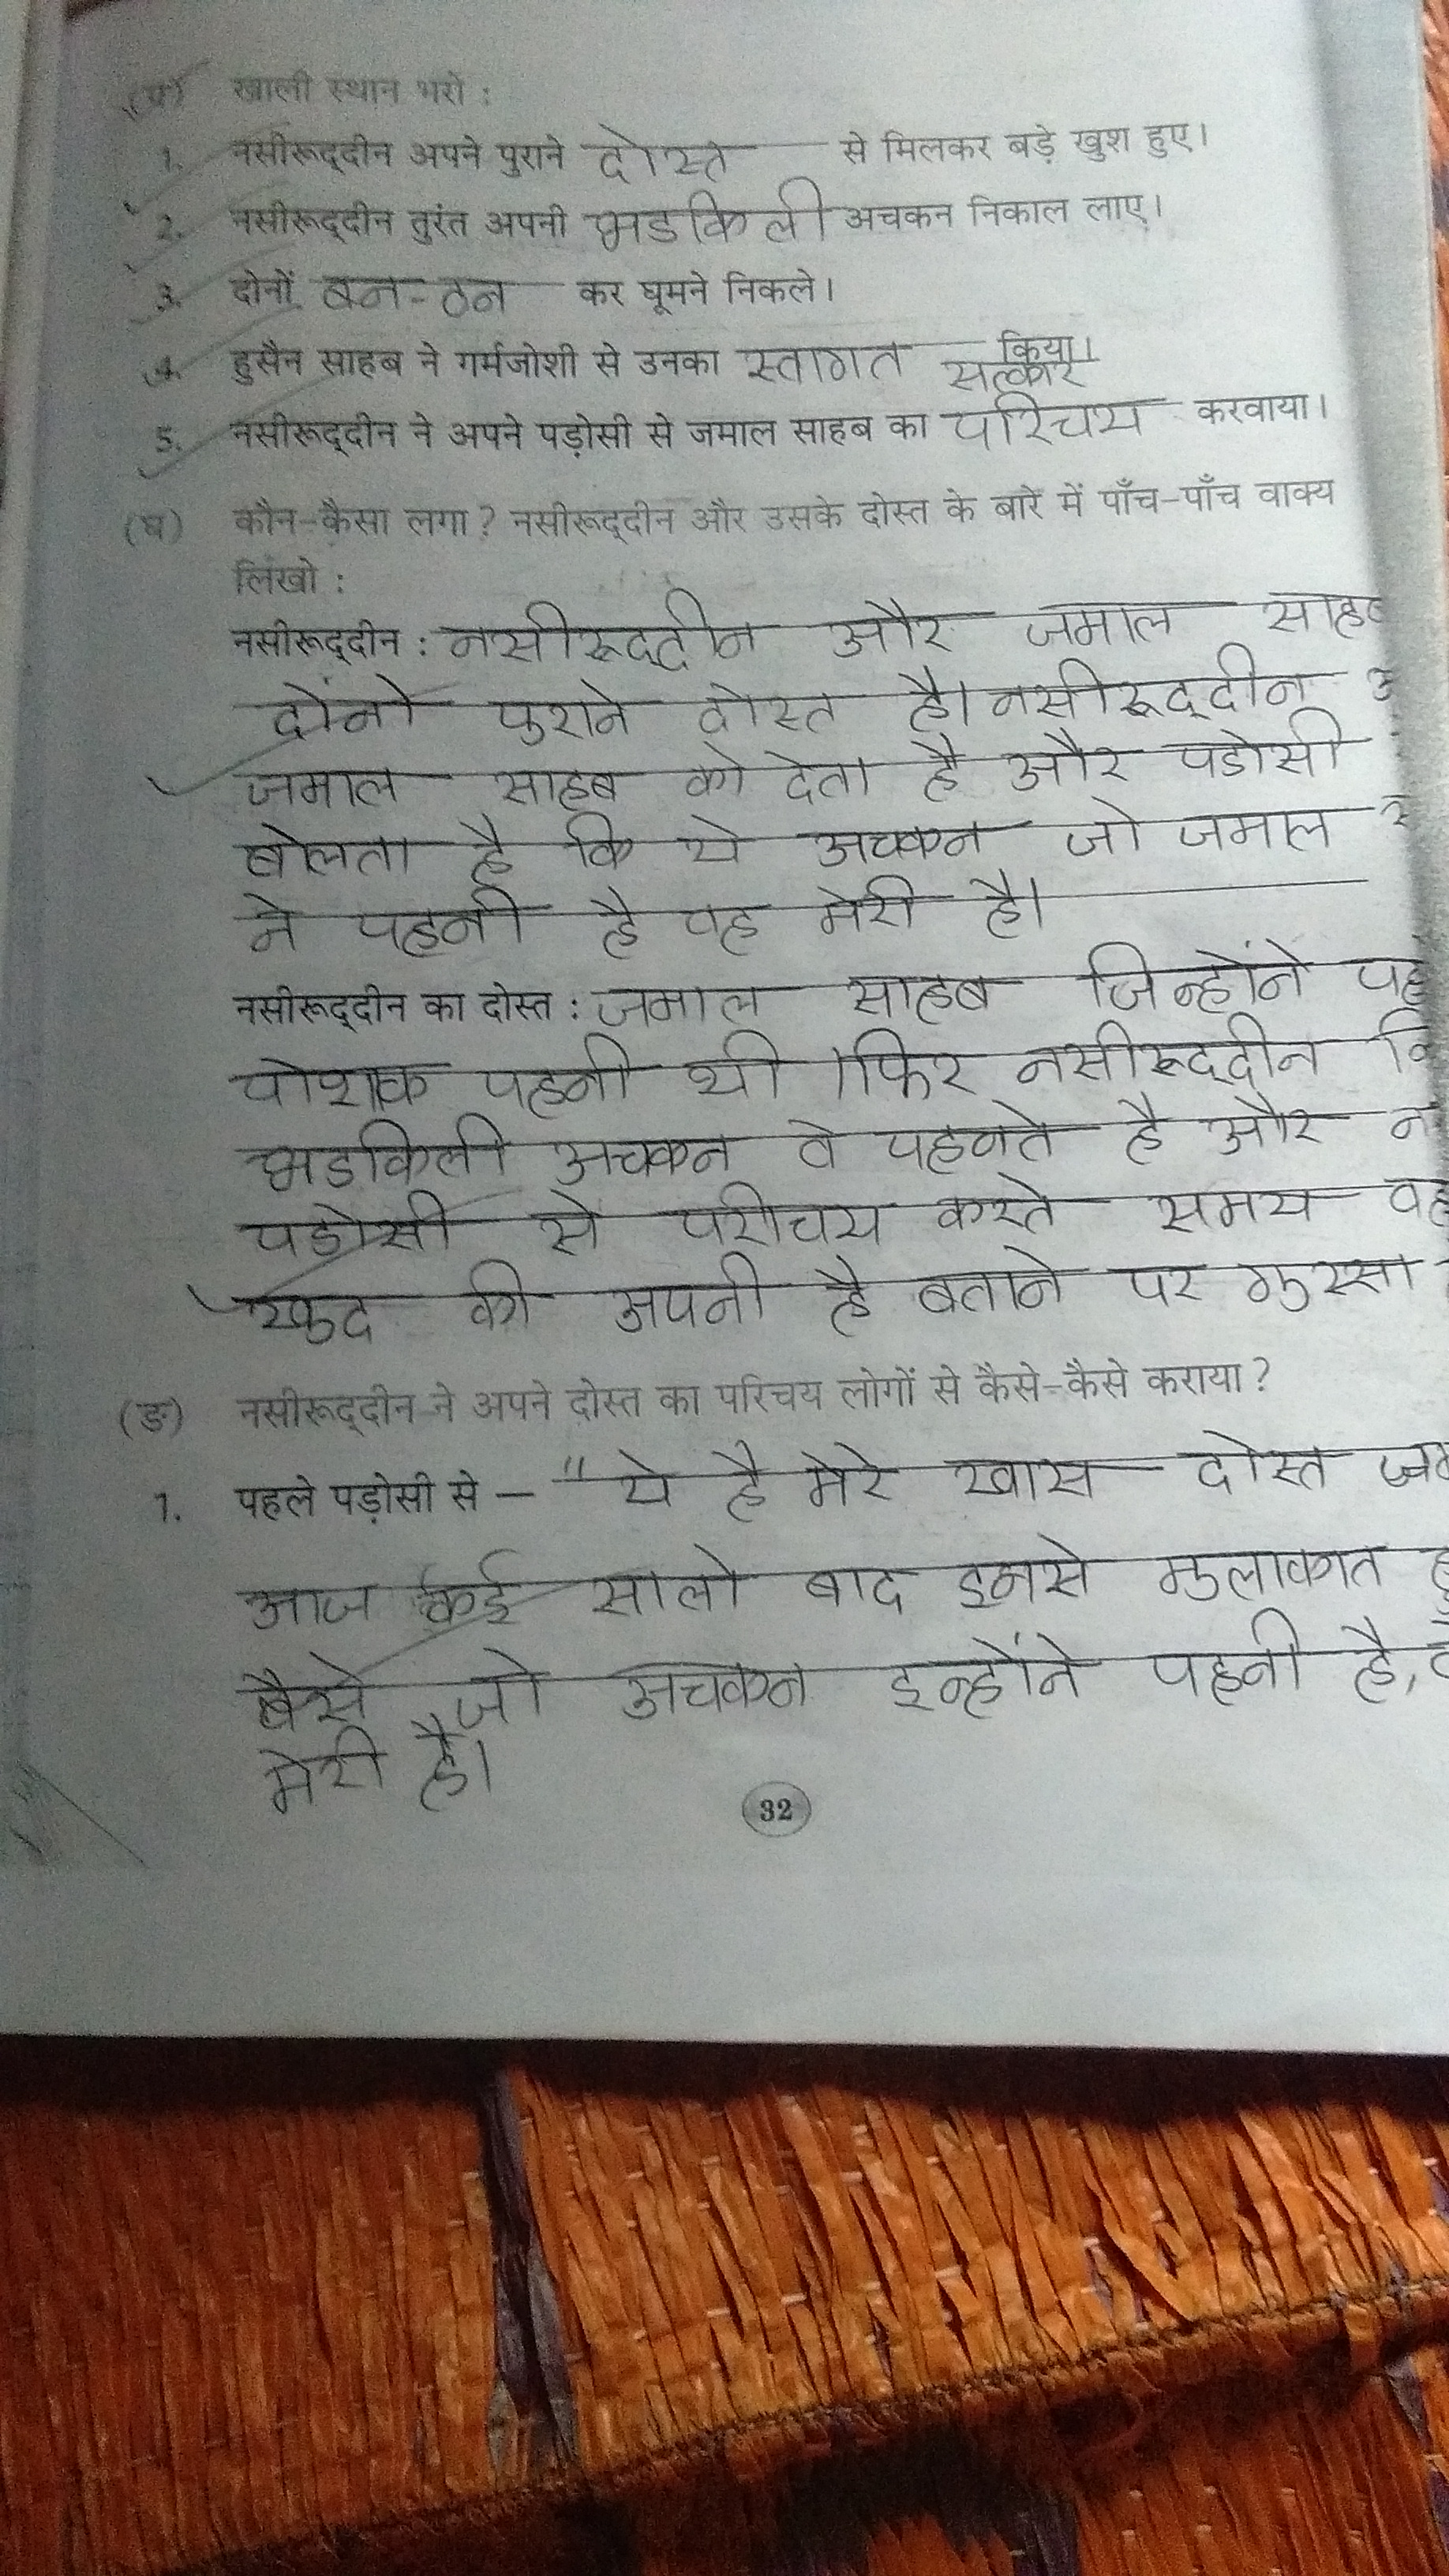 खाली स्थान भरो :
1. नसीरूद्दीन अपने पुराने दोस्त से मिलकर बड़े खुश हुए।
2. नसीरूद्दीन तुरंत अपनी भडकिली अचकन निकाल लाए।
3. दोनों बन-ठन कर घूमने निकले।
4. हुसैन साहब ने गर्मजोशी से उनका स्तागत सत्कार किया।
5. नसीरूद्दीन ने अपने पड़ोसी से जमाल साहब का परिचय करवाया।
(घ) कौन-कैसा लगा? नसीरूद्दीन और उसके दोस्त के बारे में पाँच-पाँच वाक्य
लिखो :
नसीरूद्दीन : नसीरूद्दीन और जमाल साहब
दोंनो पुराने दोस्त है। नसीरूद्दीन
जमाल साहब को देता है और पडोसी
बोलता है कि ये अचकन जो जमाल
ने पहनी है वह मेरी है।
नसीरूद्दीन का दोस्त : जमाल साहब जिन्होंने
पोशाक पहनी थी । फिर नसीरूद्दीन
भडकिली अचकन वे पहनते है और
पडोसी से परीचय करते समय
खुद की अपनी है बताने पर गुस्सा
(ङ) नसीरूद्दीन ने अपने दोस्त का परिचय लोगों से कैसे-कैसे कराया?
1. पहले पड़ोसी से – "ये है मेरे खास दोस्त
आज कई सालो बाद इनसे मुलाकात
वैसे जो अचकन इन्होंने पहनी है,
मेरी है।
32